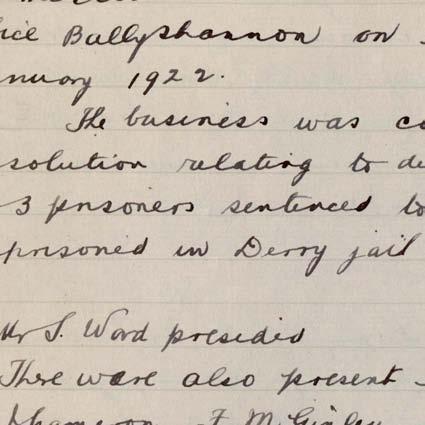 ice Ballyshannon on
nuary 1922.
The business was co
solution relating to de
3 prisoners sentenced to
prisoned in Derry jail
Mr S. Ward presided
There were also present -
F. McGinley